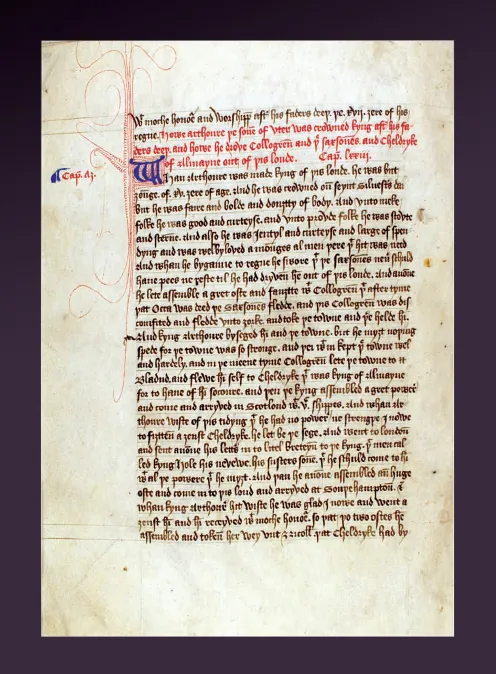 Wt moche honor and worshipp aftr his faders deeþ. þe. xvij. ȝere of his
regne. Howe arthoure þe sone of vter was crowned kyng aftr his fa
ders deeþ. and howe he drove Collogren and þe saxsones. and Cheldryke
of Almayne out of þis londe. Cap. lxxiij.
Whan Arthoure was made kyng of þis londe. he was butt
ȝonge. of. xv. ȝere of age. And he was crowned on seynt
But he was faire and bolde and douȝty of body. And vnto meke
folke he was good and curteyse. and vnto proude folke he was stoute
and sterne. and also he was Jentyl and curteyse and large of spen
dyng and was welbyloved a monges al men þere þt hit was need
And whan he byganne to regne he swore þt þe saxsones neuer schuld
haue pees ne reste til he had dryven hem out of þis londe. And anone
he lett assemble a gret oste and fauȝtte wt Collogren þt after tyme
þat Octa was deed þe Saxsones fledde. and þis Collogren was dis
comfited and fledde vnto ȝorke. and toke þe towne and þere helde him.
And kyng Arthoure byseged him and þe towne. but he myȝt noþing
spede for þe towne was so stronge. and þei wt in kept þe towne wel
and hardely. and in þe meene tyme Collogren lete þe towne to
Bladud. and flewe him self to Cheldryke þt was kyng of Almayne
for to haue of him socoure. and þen þe kyng assembled a gret power
and come and arryved in Scotlond wt. v. shippes. And whan Ar
thoure wiste of þis tydyng þt he had no power ne strengþe I nowe
to fiȝtten a ȝenst Cheldryke. he let be þe sege. And went to london
and sent anone his lettres in to litel Breteyn to þe kyng. þt men cal
led kyng Hole his nevewe. his susters sone. þt he schuld come to him
wt al þe powere þt he myȝt. And þan he anone assembled an huge
oste and come in to þis lond and arryved at Souþehampton. &
whan kyng Arthoure hit wiste he was glad I nowe and went a
ȝenst him and him receyved wt moche honor. so þat þo two ostes he
assembled and token her wey vnto Nicoll þat Cheldryke had by